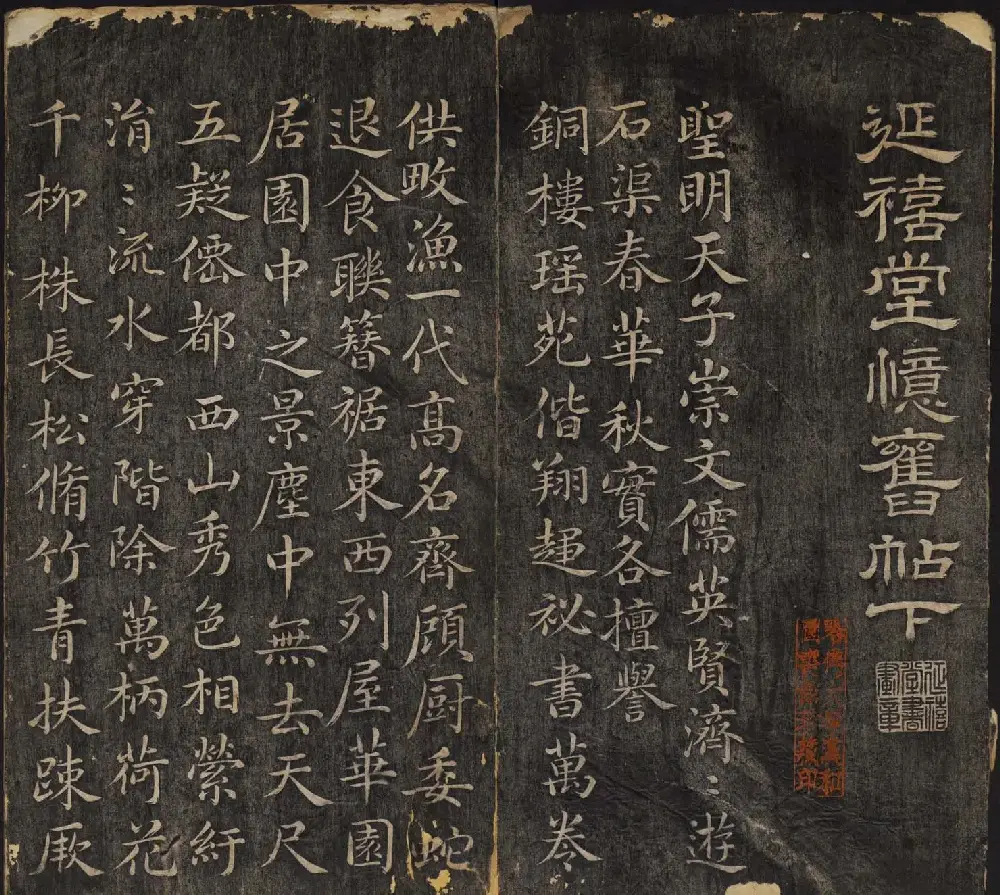 延禧堂憶舊帖下
延禧堂書畫章
聖明天子崇文儒英賢濟〻遊
石渠春華秋實各擅譽
銅樓瑶苑偕翔趨祕書萬卷
供畋漁一代高名齊顧厨委蛇
退食聯簪裾東西列屋華園
居園中之景塵中無去天尺
五疑僊都西山秀色相縈紆
㳙〻流水穿階除萬柄荷花
千柳株長松脩竹青扶踈厥